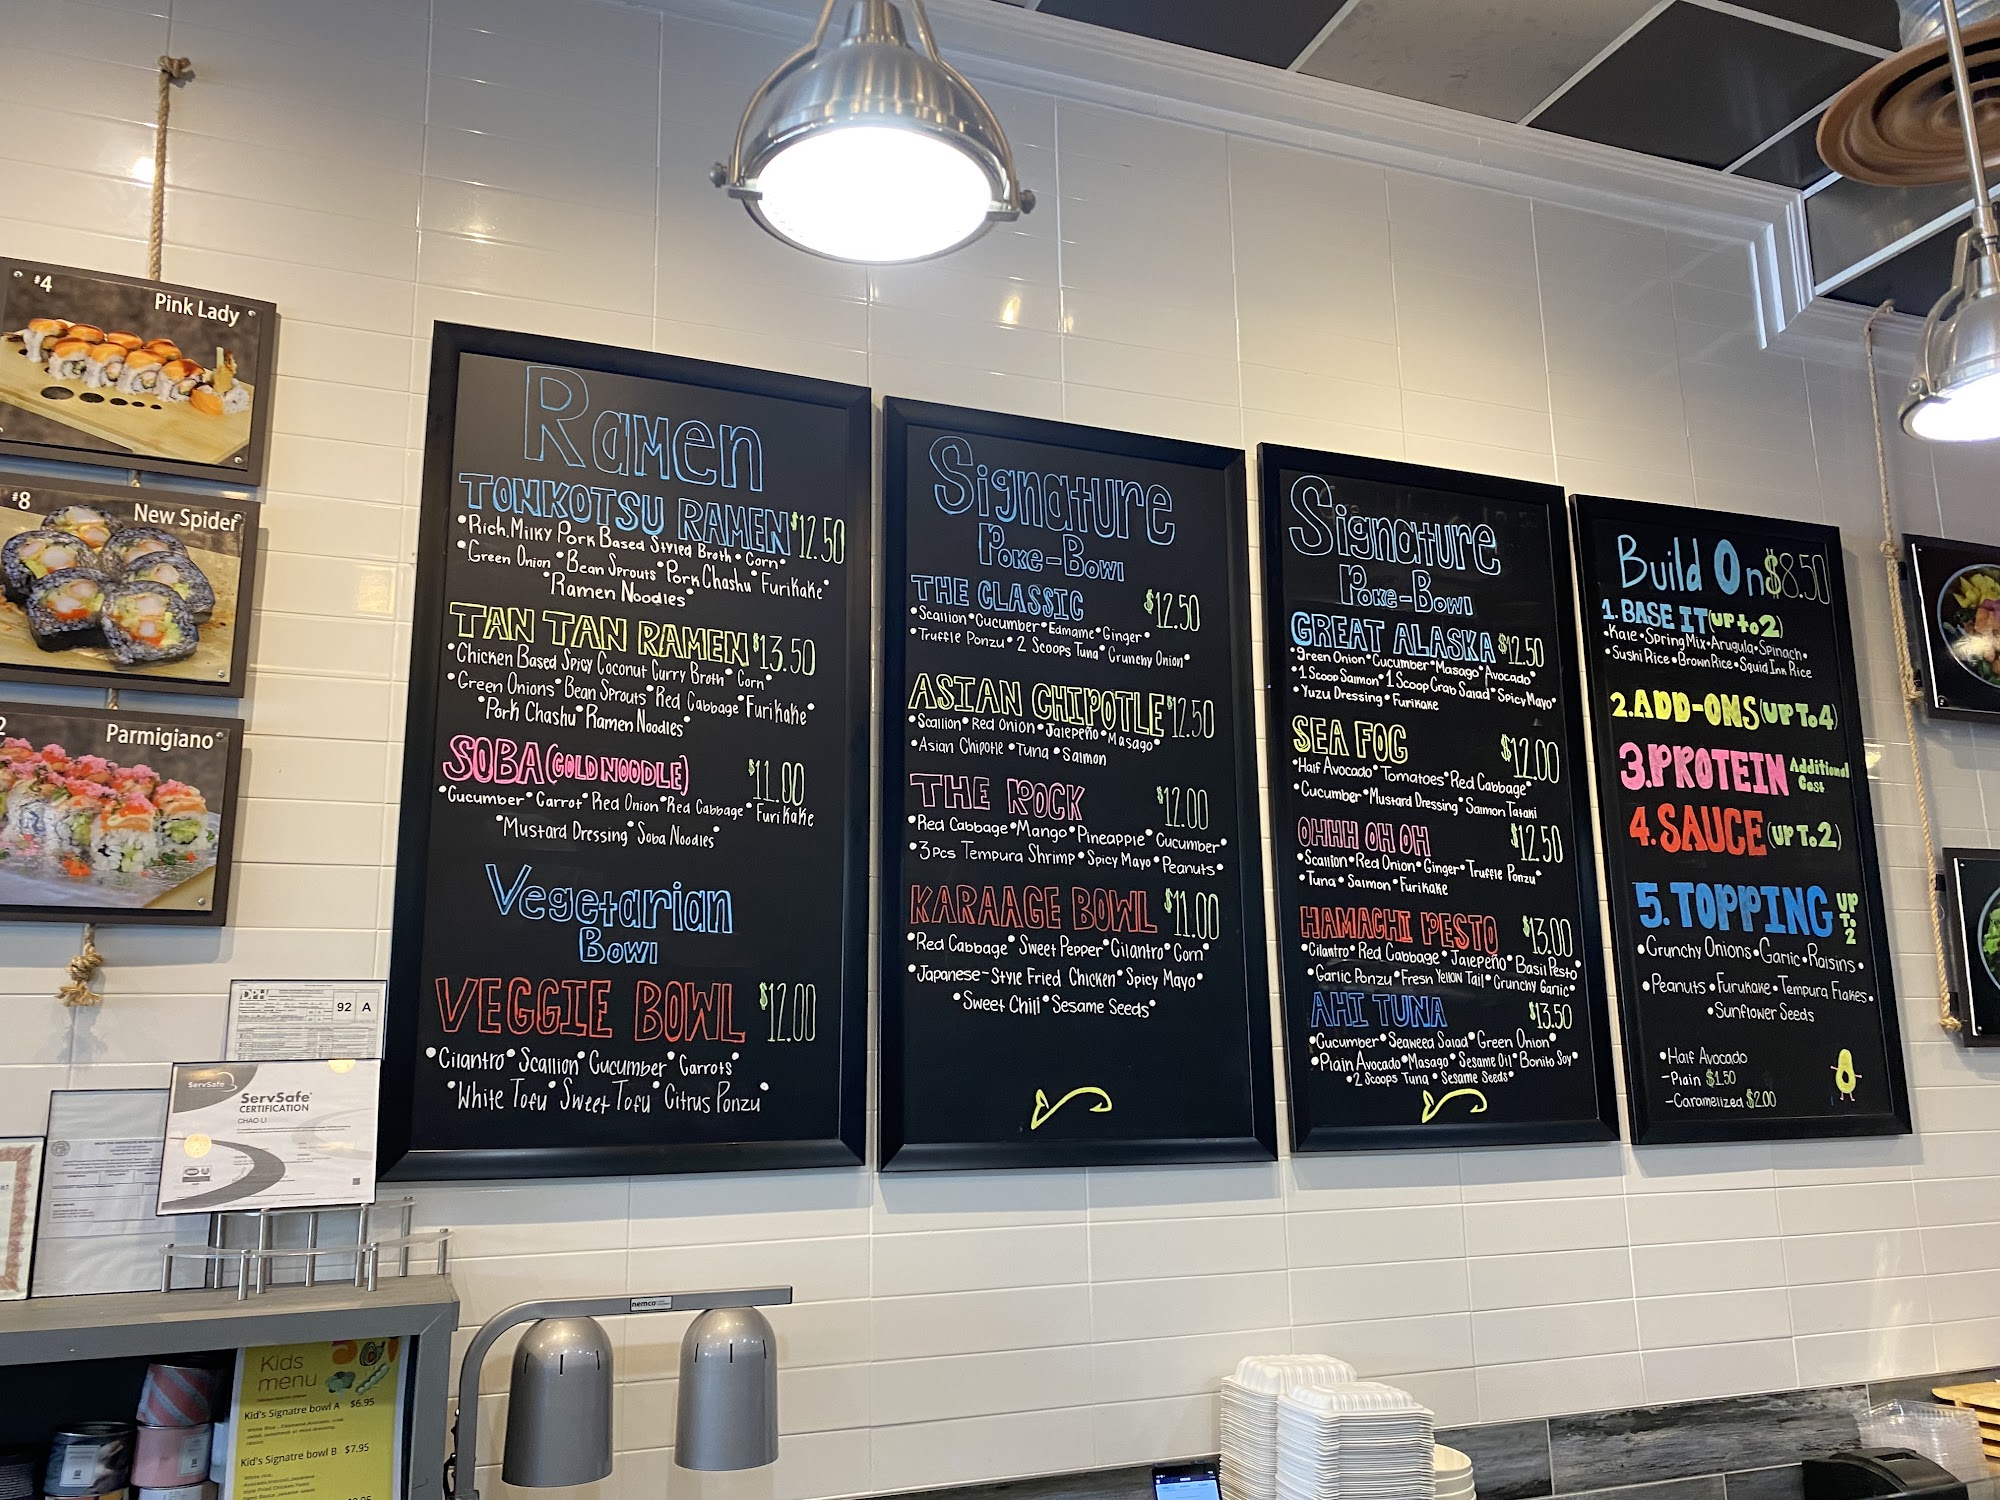 #4
Pink Lady
#8
New Spider
Parmigiano
Ramen
TONKOTSU RAMEN $12.50
•Rich, Milky Pork Based Styled Broth•Corn•
•Green Onion•Bean Sprouts•Pork Chashu•Furikake•
•Ramen Noodles•
TAN TAN RAMEN $13.50
•Chicken Based Spicy Coconut Curry Broth•Corn•
•Green Onions•Bean Sprouts•Red Cabbage•Furikake•
•Pork Chashu•Ramen Noodles•
SOBA (COLD NOODLE) $11.00
•Cucumber•Carrot•Red Onion•Red Cabbage•Furikake
•Mustard Dressing•Soba Noodles•
Vegetarian
Bowl
VEGGIE BOWL $12.00
•Cilantro•Scallion•Cucumber•Carrots•
•White Tofu•Sweet Tofu•Citrus Ponzu•
Signature
Poke-Bowl
THE CLASSIC $12.50
•Scallion•Cucumber•Edmame•Ginger•
•Truffle Ponzu•2 Scoops Tuna•Crunchy Onion•
ASIAN CHIPOTLE $12.50
•Scallion•Red Onion•Jalepeño•Masago•
•Asian Chipotle•Tuna•Salmon
THE ROCK $12.00
•Red Cabbage•Mango•Pineapple•Cucumber•
•3pcs Tempura Shrimp•Spicy Mayo•Peanuts•
KARAAGE BOWL $11.00
•Red Cabbage•Sweet Pepper•Cilantro•Corn•
•Japanese-Style Fried Chicken•Spicy Mayo•
•Sweet Chili•Sesame Seeds•
Signature
Poke-Bowl
GREAT ALASKA $12.50
•Green Onion•Cucumber•Masago•Avocado•
•1 Scoop Salmon•1 Scoop Crab Salad•Spicy Mayo•
•Yuzu Dressing•Furikake
SEA FOG $12.00
•Half Avocado•Tomatoes•Red Cabbage•
•Cucumber•Mustard Dressing•Salmon Tataki
OHHH OH OH $12.50
•Scallion•Red Onion•Ginger•Truffle Ponzu•
•Tuna•Salmon•Furikake
HAMACHI PESTO $13.00
•Cilantro•Red Cabbage•Jalepeño•Basil Pesto•
•Garlic Ponzu•Fresh Yellow Tail•Crunchy Garlic•
AHI TUNA $13.50
•Cucumber•Seaweed Salad•Green Onion•
•Plain Avocado•Masago•Sesame Oil•Bonito Soy•
•2 Scoops Tuna•Sesame Seeds•
Build On $8.50
1. BASE IT (UP to 2)
•Kale•Spring Mix•Arugula•Spinach•
•Sushi Rice•Brown Rice•Squid Ink Rice
2. ADD-ONS (UP To 4)
3. PROTEIN Additional Cost
4. SAUCE (UP To 2)
5. TOPPING UP To 2
•Crunchy Onions•Garlic•Raisins•
•Peanuts•Furukake•Tempura Flakes•
•Sunflower Seeds
•Half Avocado
-Plain $1.50
-Caramelized $2.00
DPH
92 A
ServSafe
ServSafe®
CERTIFICATION
CHAO LI
nemco
Kids
menu
Kid's Signatre bowl A $6.95
Kid's Signatre bowl B $7.95
White rice,